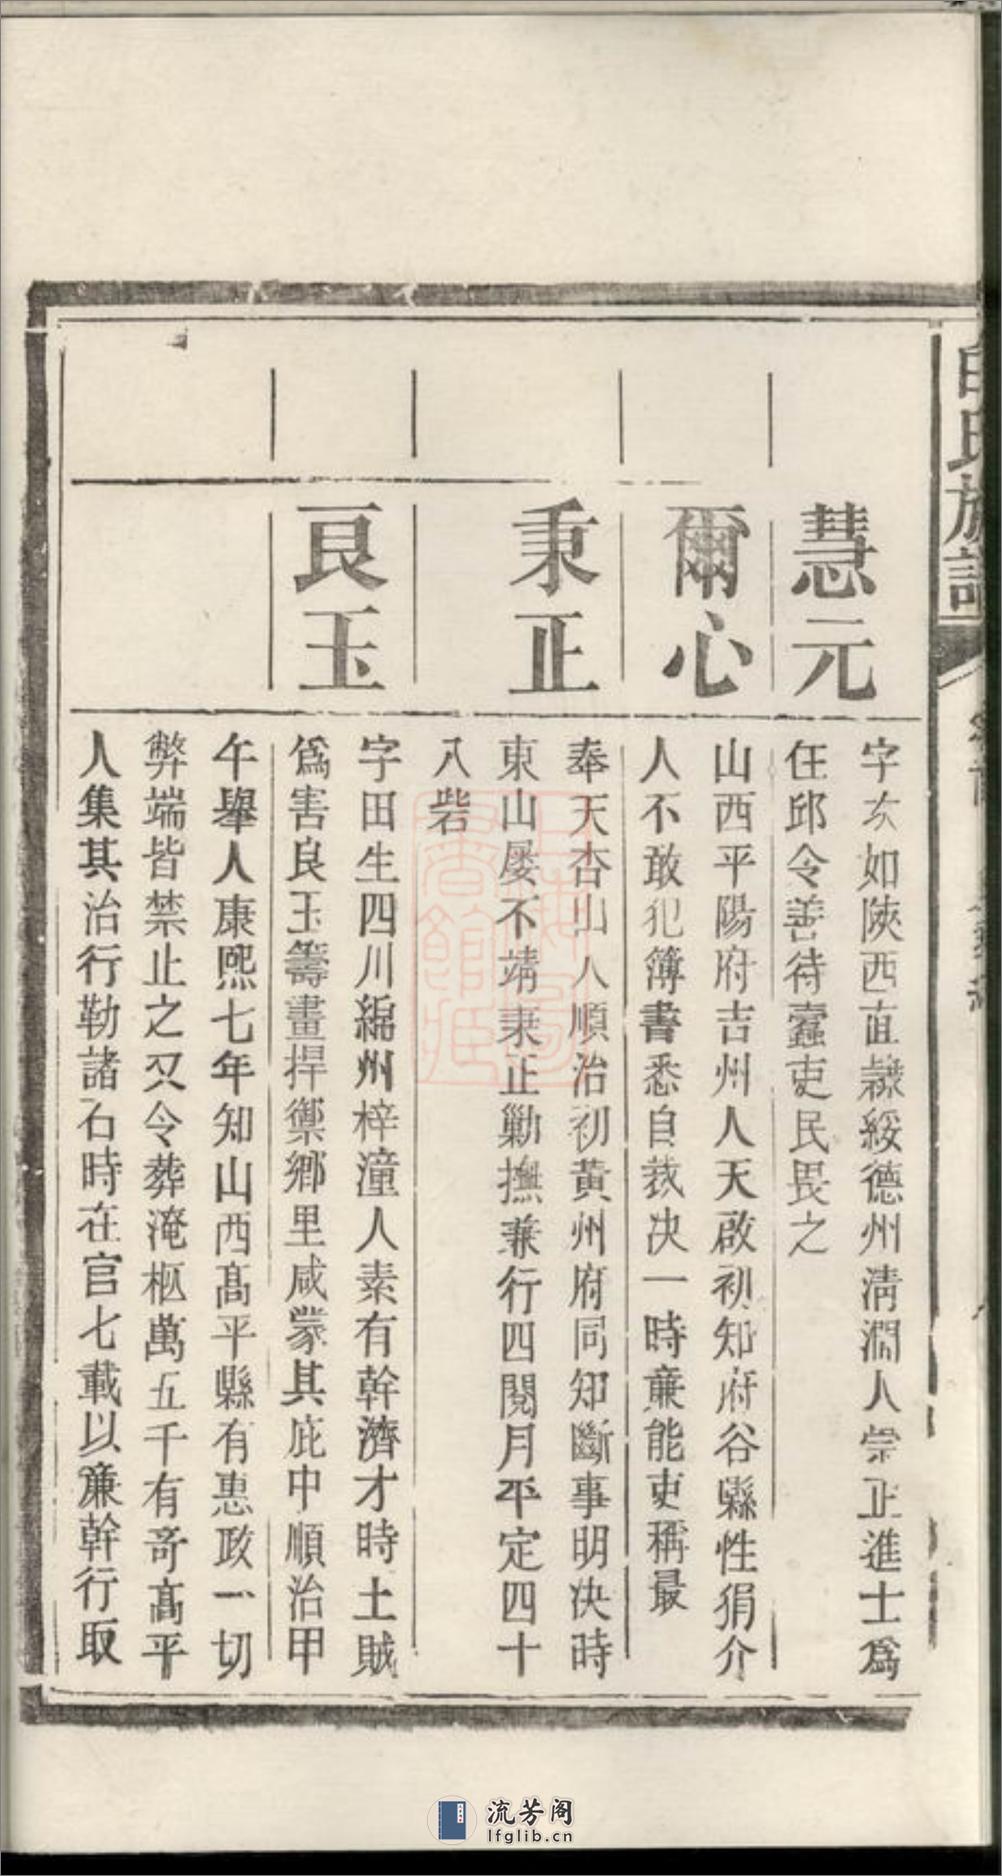 白氏族譜
慧元
字 如陝西直隸綏德州清澗人崇正進士爲
任邱令善待蠹吏民畏之
爾心
山西平陽府吉州人天啟初知府谷縣性狷介
人不敢犯簿書悉自裁决一時亷能吏稱最
秉正
奉天杏山人順治初黃州府同知斷事明决時
東山屡不靖秉正勦撫兼行四閱月平定四十
八砦
良玉
字田生四川綿州梓潼人素有幹濟才時土賊
爲害良玉籌畫捍禦鄉里咸蒙其庇中順治甲
午舉人康熙七年知山西髙平縣有惠政一切
弊端皆禁止之又令葬淹柩萬五千有奇髙平
人集其治行勒諸石時在官七載以廉幹行取
流芳阁
lfglib.cn